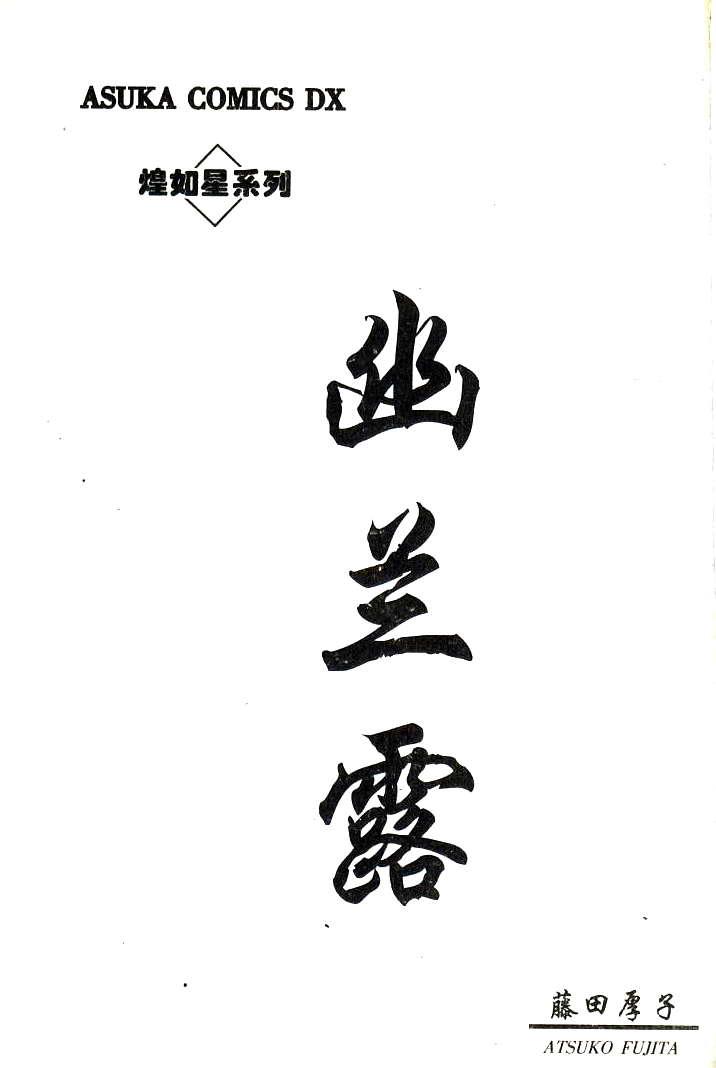 ASUKA COMICS DX
煌如星系列
幽兰露
藤田厚子
ATSUKO FUJITA